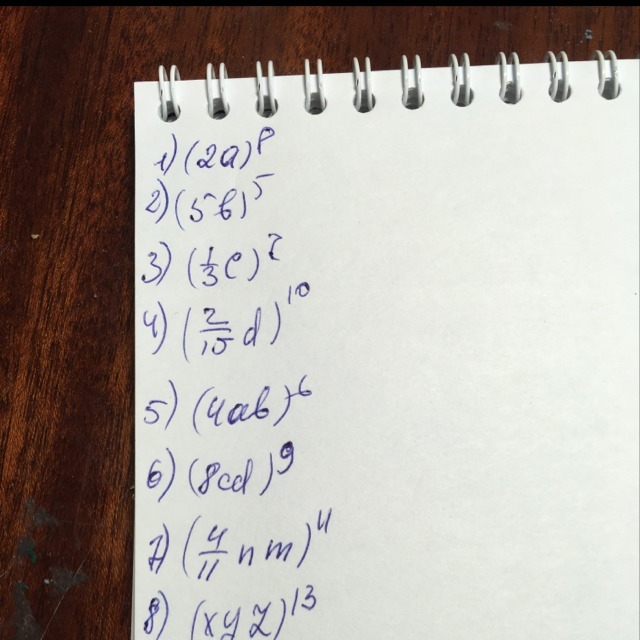 1) (2a)⁸
2) (5b)⁵
3) (1/3 c)⁷
4) (2/15 d)¹⁰
5) (4ab)⁶
6) (8cd)⁹
7) (4/11 nm)⁴
8) (xyz)¹³